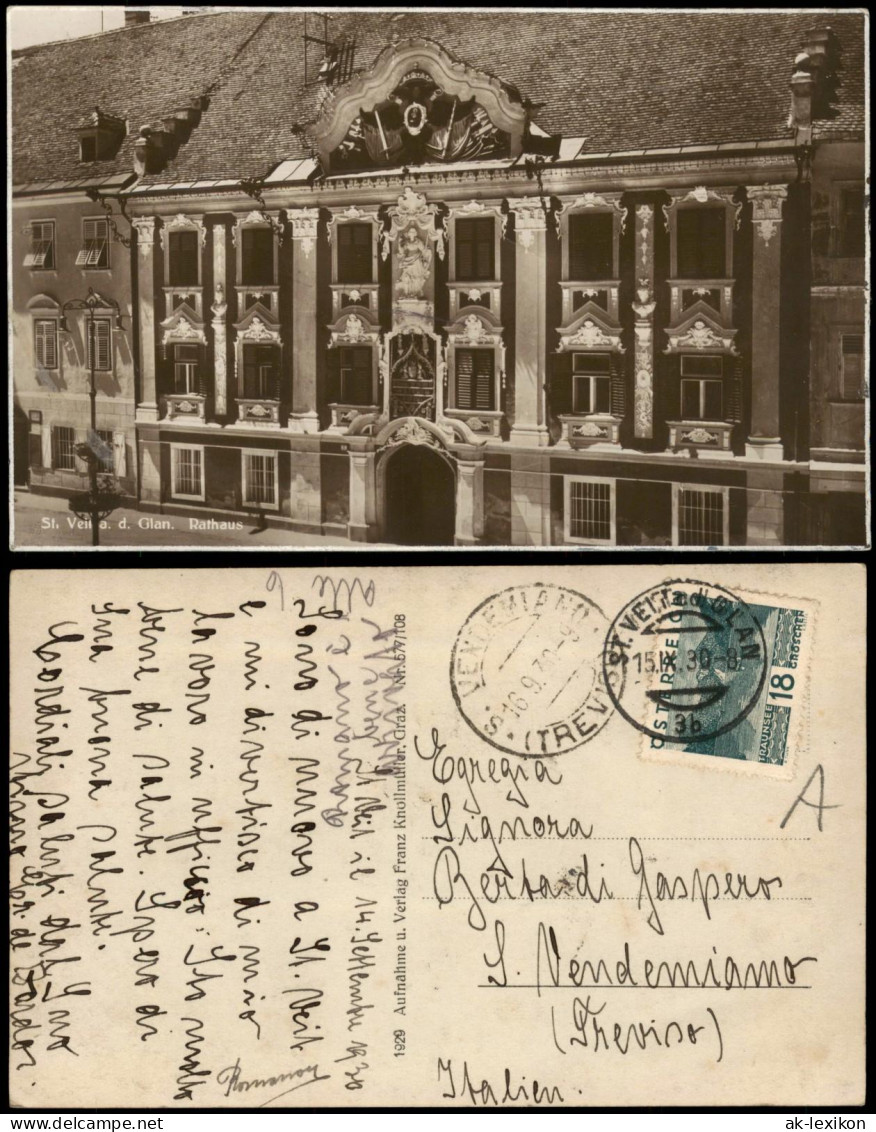 St. Veit a. d. Glan. Rathaus
St. Veit il 14. Settembre 1930
Sono di nuovo a St. Veit
e mi diverto di mio
lavoro in ufficio: Sto molto
bene di salute. Spero di
Sua buona salute.
Cordiali saluti dal Suo
1929 Aufnahme u. Verlag Franz Knollmüller, Graz. Nr. 577/108
S. VENDEMIANO
16.9.30-9
(TREVISO)
ST. VEIT a.d. GLAN
15.IX.30-8
3b
ÖSTERREICH
18
GROSCHEN
TRAUNSEE
A
Egregia
Signora
Berta di Gaspero
S. Vendemiano
(Treviso)
Italien.
ak-lexikon